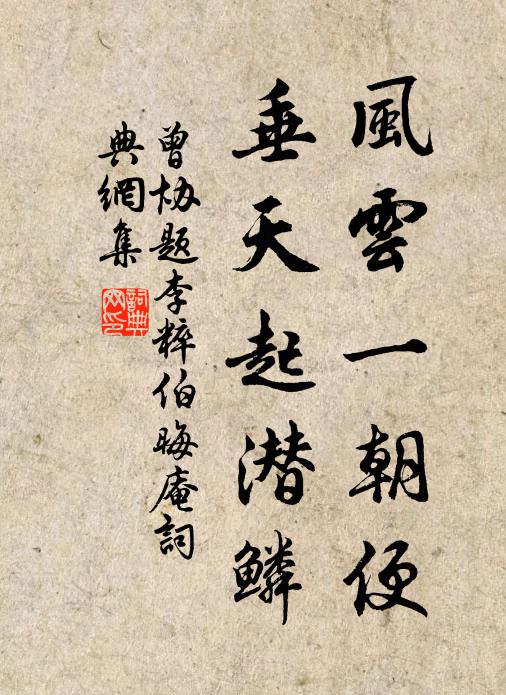 風雲一朝便
垂天起潜鱗
曾协題李粹伯晦庵詞
典網集
詞典网印